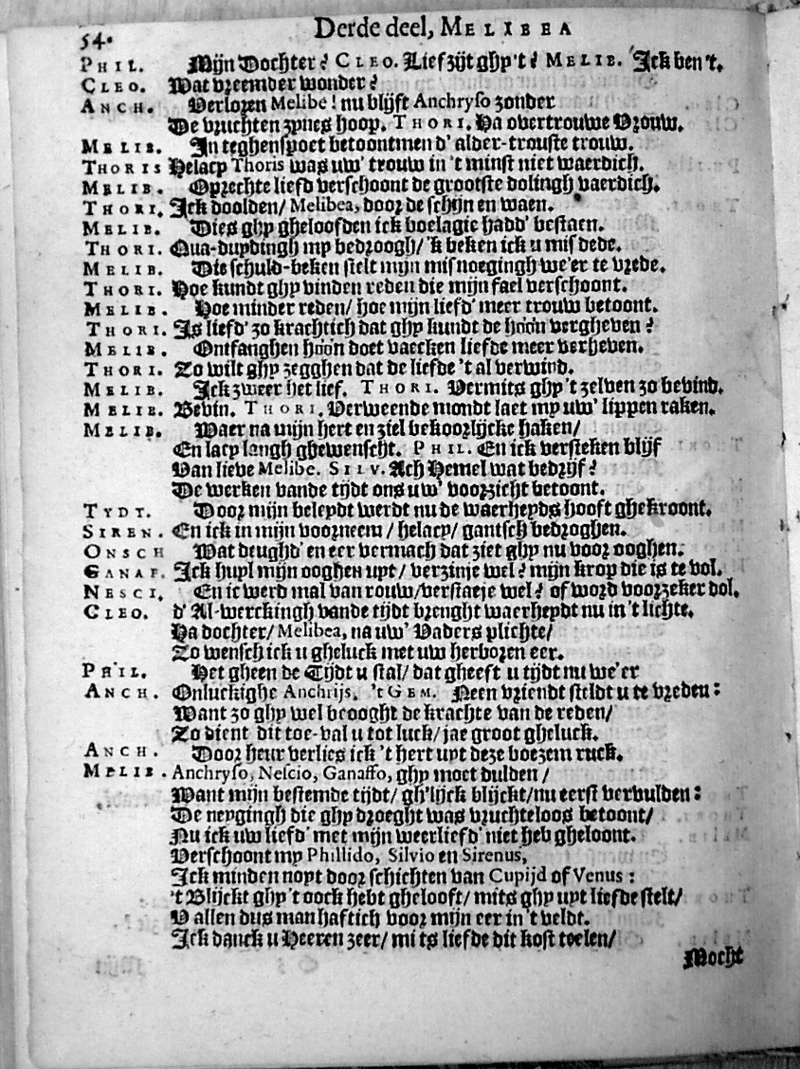 54. Derde deel, MELIBEA
PHIL. Mijn Dochter? CLEO. Lief zijt ghy't? MELIB. Ick ben't.
CLEO. Wat vreemder wonder?
ANCH. Verloren Melibe! nu blijft Anchryso zonder
De vruchten zynes hoop. THORI. Ha overtrouwe Vrouw.
MELIB. In teghenspoet betoontmen d'alder-trouste trouw.
THORIS Helacy Thoris was uw' trouw in 't minst niet waerdich.
MELIB. Oprechte liefd verschoont de grootste dolingh vaerdich.
THORI. Ick doolden/ Melibea, door de schijn en waen.
MELIB. Dies ghy gheloofden ick boelagie hadd' bestaen.
THORI. Qua-duydingh my bedroogh/ 'k beken ick u misdede.
MELIB. Die schuld-beken stelt mijn misnoegingh we'er te vrede.
THORI. Hoe kundt ghy vinden reden die mijn fael verschoont.
MELIB. Hoe minder reden/ hoe mijn liefd' meer trouw betoont.
THORI. Is liefd' zo krachtich dat ghy kundt de hóón vergheven?
MELIB. Ontfanghen hóón doet vaecken liefde meer verheven.
THORI. Zo wilt ghy zegghen dat de liefde 't al verwind.
MELIB. Ick zweer het lief. THORI. Vermits ghy 't zelven zo bevind.
MELIB. Bevin. THORI. Verweende mondt laet my uw' lippen raken.
MELIB. Waer na mijn hert en ziel bekoorlijcke haken/
En lacy langh ghewenscht. PHIL. En ick versteken blijf
Van lieve Melibe. SILV. Ach Hemel wat bedrijf?
De werken vande tijdt ons uw' voorzicht betoont.
TYDT. Door mijn beleydt werdt nu de waerheyds hooft ghekroont.
SIREN. En ick in mijn voorneem/ helacy/ gantsch bedroghen.
ONSCH Wat deughd' en eer vermach dat ziet ghy nu voor ooghen.
GANAF. Ick huyl mijn ooghen uyt/ verzinje wel? mijn krop die is te vol.
NESCI. En ic werd mal van rouw/verstaeje wel? of word voorzeker dol.
CLEO. d'Al-werckingh vande tijdt brenght waerheydt nu in't lichte.
Ha dochter/ Melibea, na uw' Vaders plichte/
Zo wensch ick u gheluck met uw herboren eer.
PHIL. Het gheen de Tijdt u stal/ dat gheeft u tijdt nu we'er
ANCH. Onluckighe Anchrijs. 't GEM. Neen vriendt steldt u te vreden:
Want zo ghy wel beooght de krachte van de reden/
Zo dient dit toe-val u tot luck/ jae groot gheluck.
ANCH. Door heur verlies ick 't hert uyt deze boezem ruck.
MELIB. Anchryso, Nescio, Ganaffo, ghy moet dulden/
Want mijn bestemde tijdt/ gh'lijck blijckt/nu eerst vervulden:
De neygingh die ghy droeght was vruchteloos betoont/
Nu ick uw liefd' met mijn weerliefd' niet heb gheloont.
Verschoont my Phillido, Silvio en Sirenus,
Ick minden noyt door schichten van Cupijd of Venus:
't Blijckt ghy 't oock hebt ghelooft/ mits ghy uyt liefde stelt/
V allen dus manhaftich voor mijn eer in't veldt.
Ick danck u Heeren zeer/ mits liefde dit kost teelen/
Mocht